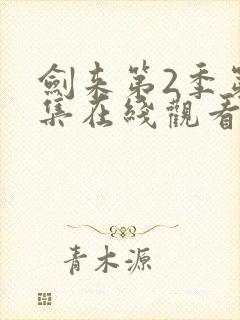 劍来第2季第
集在綫觀看
青木源